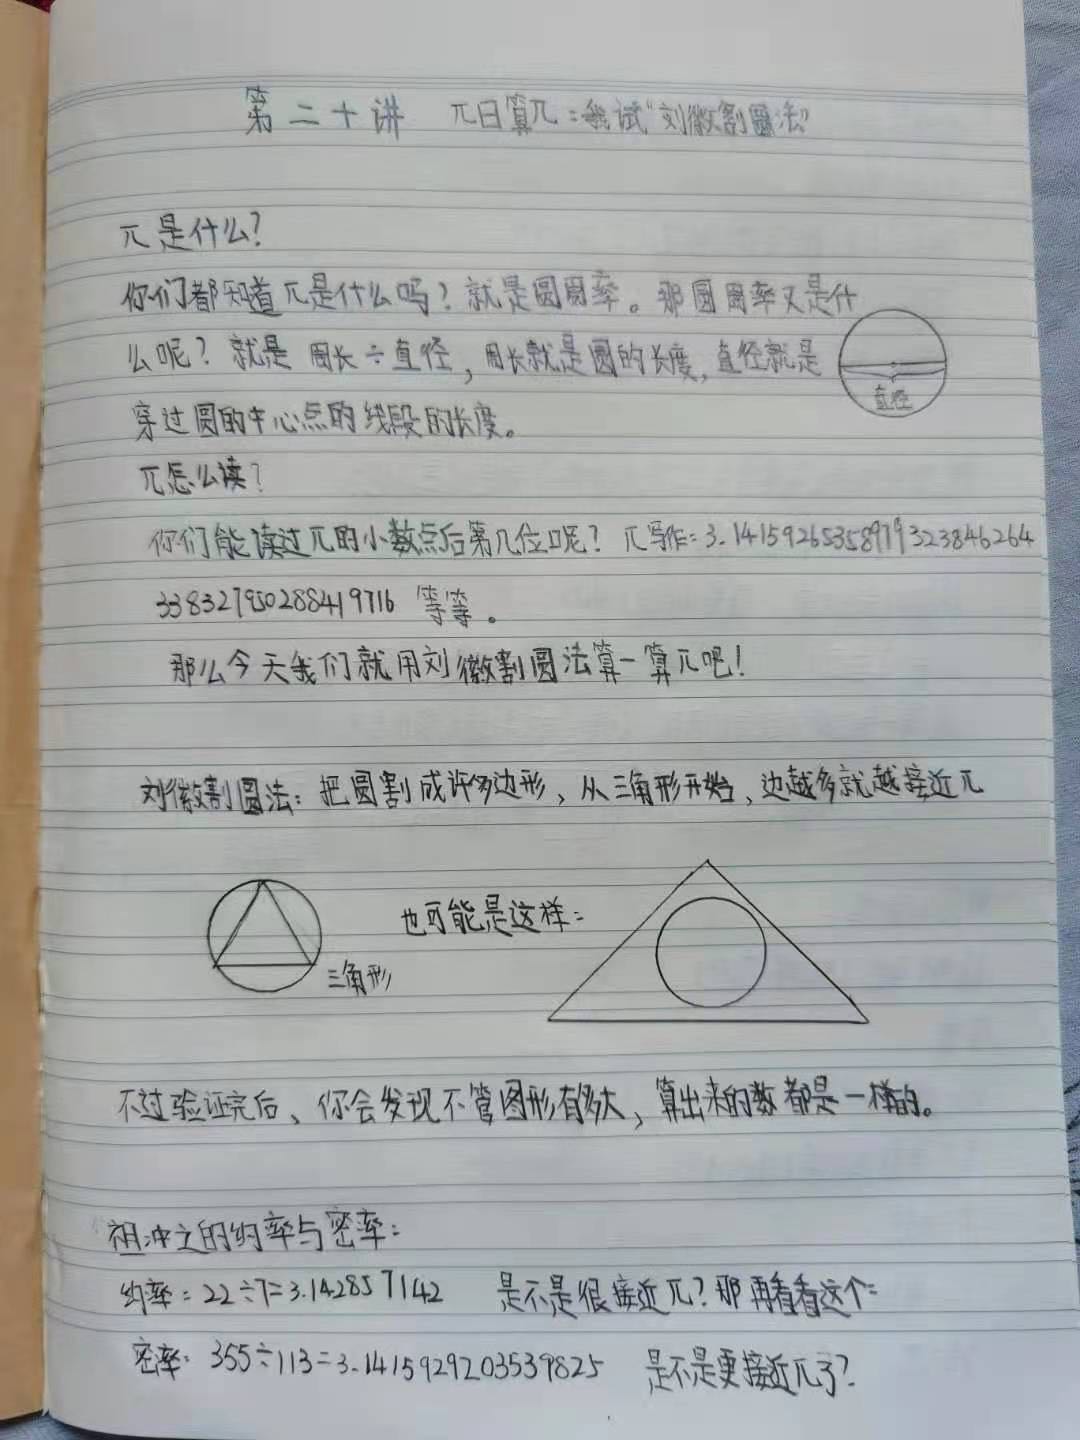 第二十讲 π日算π:我试“刘徽割圆法”
π是什么?
你们都知道π是什么吗?就是圆周率。那圆周率又是什
么呢?就是周长÷直径,周长就是圆的长度,直径就是
直径
穿过圆的中心点的线段的长度。
π怎么读?
你们能读过π的小数点后第几位呢?π写作:3.14159265358979323846264
338327950288419716 等等。
那么今天我们就用刘徽割圆法算一算π吧!
刘徽割圆法:把圆割成许多边形、从三角形开始、边越多就越接近π
也可能是这样:
三角形
不过验证完后、你会发现不管图形有多大,算出来的数都是一样的。
祖冲之的约率与密率:
约率:22÷7=3.142857142 是不是很接近π?那再看看这个:
密率:355÷113=3.1415929203539825 是不是更接近π了?